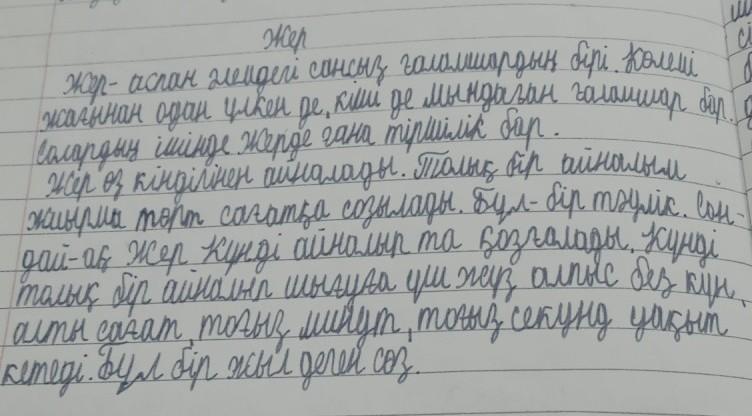 Жер
Жер- аспан әлемдегі сансыз ғаламшардың бірі. Көлемі
жағыннан одан үлкен де, кіші де мыңдаған ғаламшар бар.
Солардың ішінде Жерде ғана тіршілік бар.
Жер өз кінділінен айналады. Толық бір айналым
жиырма төрт сағатқа созылады. Бұл- бір тәулік. Сон-
дай-ақ Жер Күнді айналып та қозғалады. Күнді
толық бір айналып шығуға үш жүз алпыс без күн,
алты сағат, тоғыз минут, тоғыз секунд уақыт
кетеді. Бұл бір жыл деген сөз.